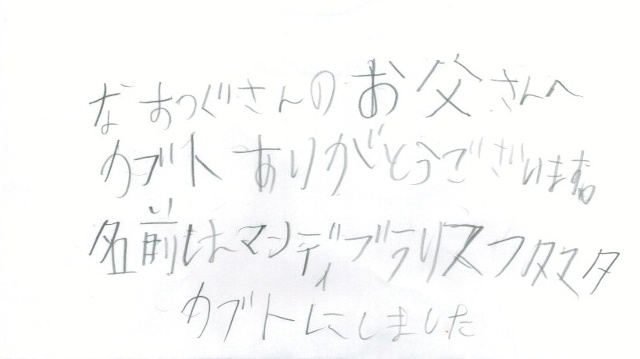 なおつぐさんのお父さんへ
カブトありがとうございます。
名前はマンディブラリスフタマタ
カブトにしました